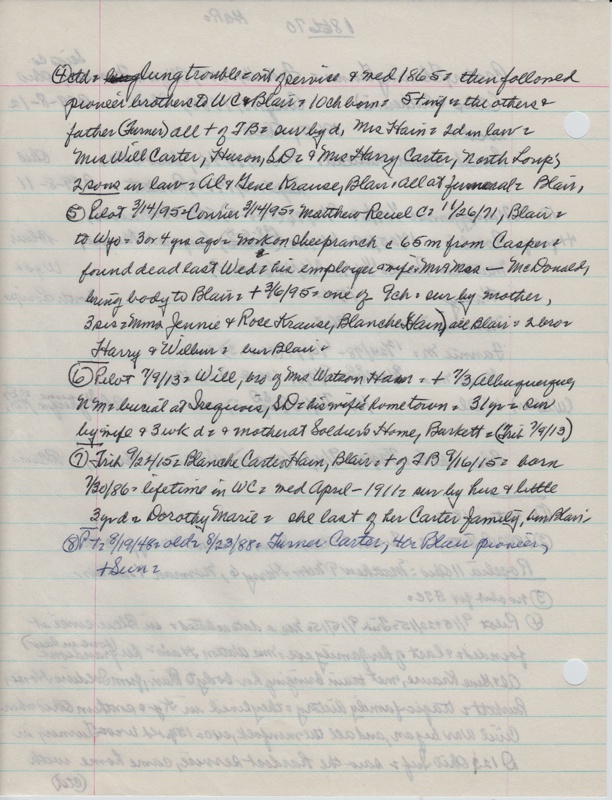 ④ ctd = lung trouble = out of service & med 1865 = then followed
pioneer brothers to WC & Blair = 10 ch born = 5 + inf = the others &
father (Turner) all + of TB = sur by d, Mrs Hain = 2 d in law =
Mrs Will Carter, Huron, S.D. = & Mrs Harry Carter, North Loup;
2 sons in law = Al & Gene Krause, Blair = all at funeral = Blair,
⑤ Pilot 3/14/95 = Courier 3/14/95 = Matthew Reuel C = 11/26/71, Blair =
to Wyo = 3 or 4 yrs ago = work on sheep ranch c 65 m from Casper =
found dead last Wed = his employer & wife = Mr & Mrs — McDonald,
bring body to Blair = + 3/6/95 = one of 9 ch = sur by mother,
3 sis = Mmes Jennie & Rose Krause, Blanche (Hain) all Blair = 2 bro =
Harry & Wilbur = bur Blair =
⑥ Pilot 7/9/13 = Will, bro of Mrs Watson Hain = + 7/3, Albuquerque,
N M = burial at Iroquois, SD = his wife's home town = 31 yr = sur
by wife & 3 wk d = & mother at Soldier's Home, Burkett = (Trib 7/9/13)
⑦ Trib 9/24/15 = Blanche Carter Hain, Blair = + of TB 9/16/15 = born
7/30/86 = lifetime in WC = med April - 1911 = sur by hus & little
3 yr d = Dorothy Marie = she last of her Carter family, bur Blair
⑧ P + = 8/19/48 = old = 8/23/88 = Turner Carter, 40r Blair pioneer,
+ Sun =